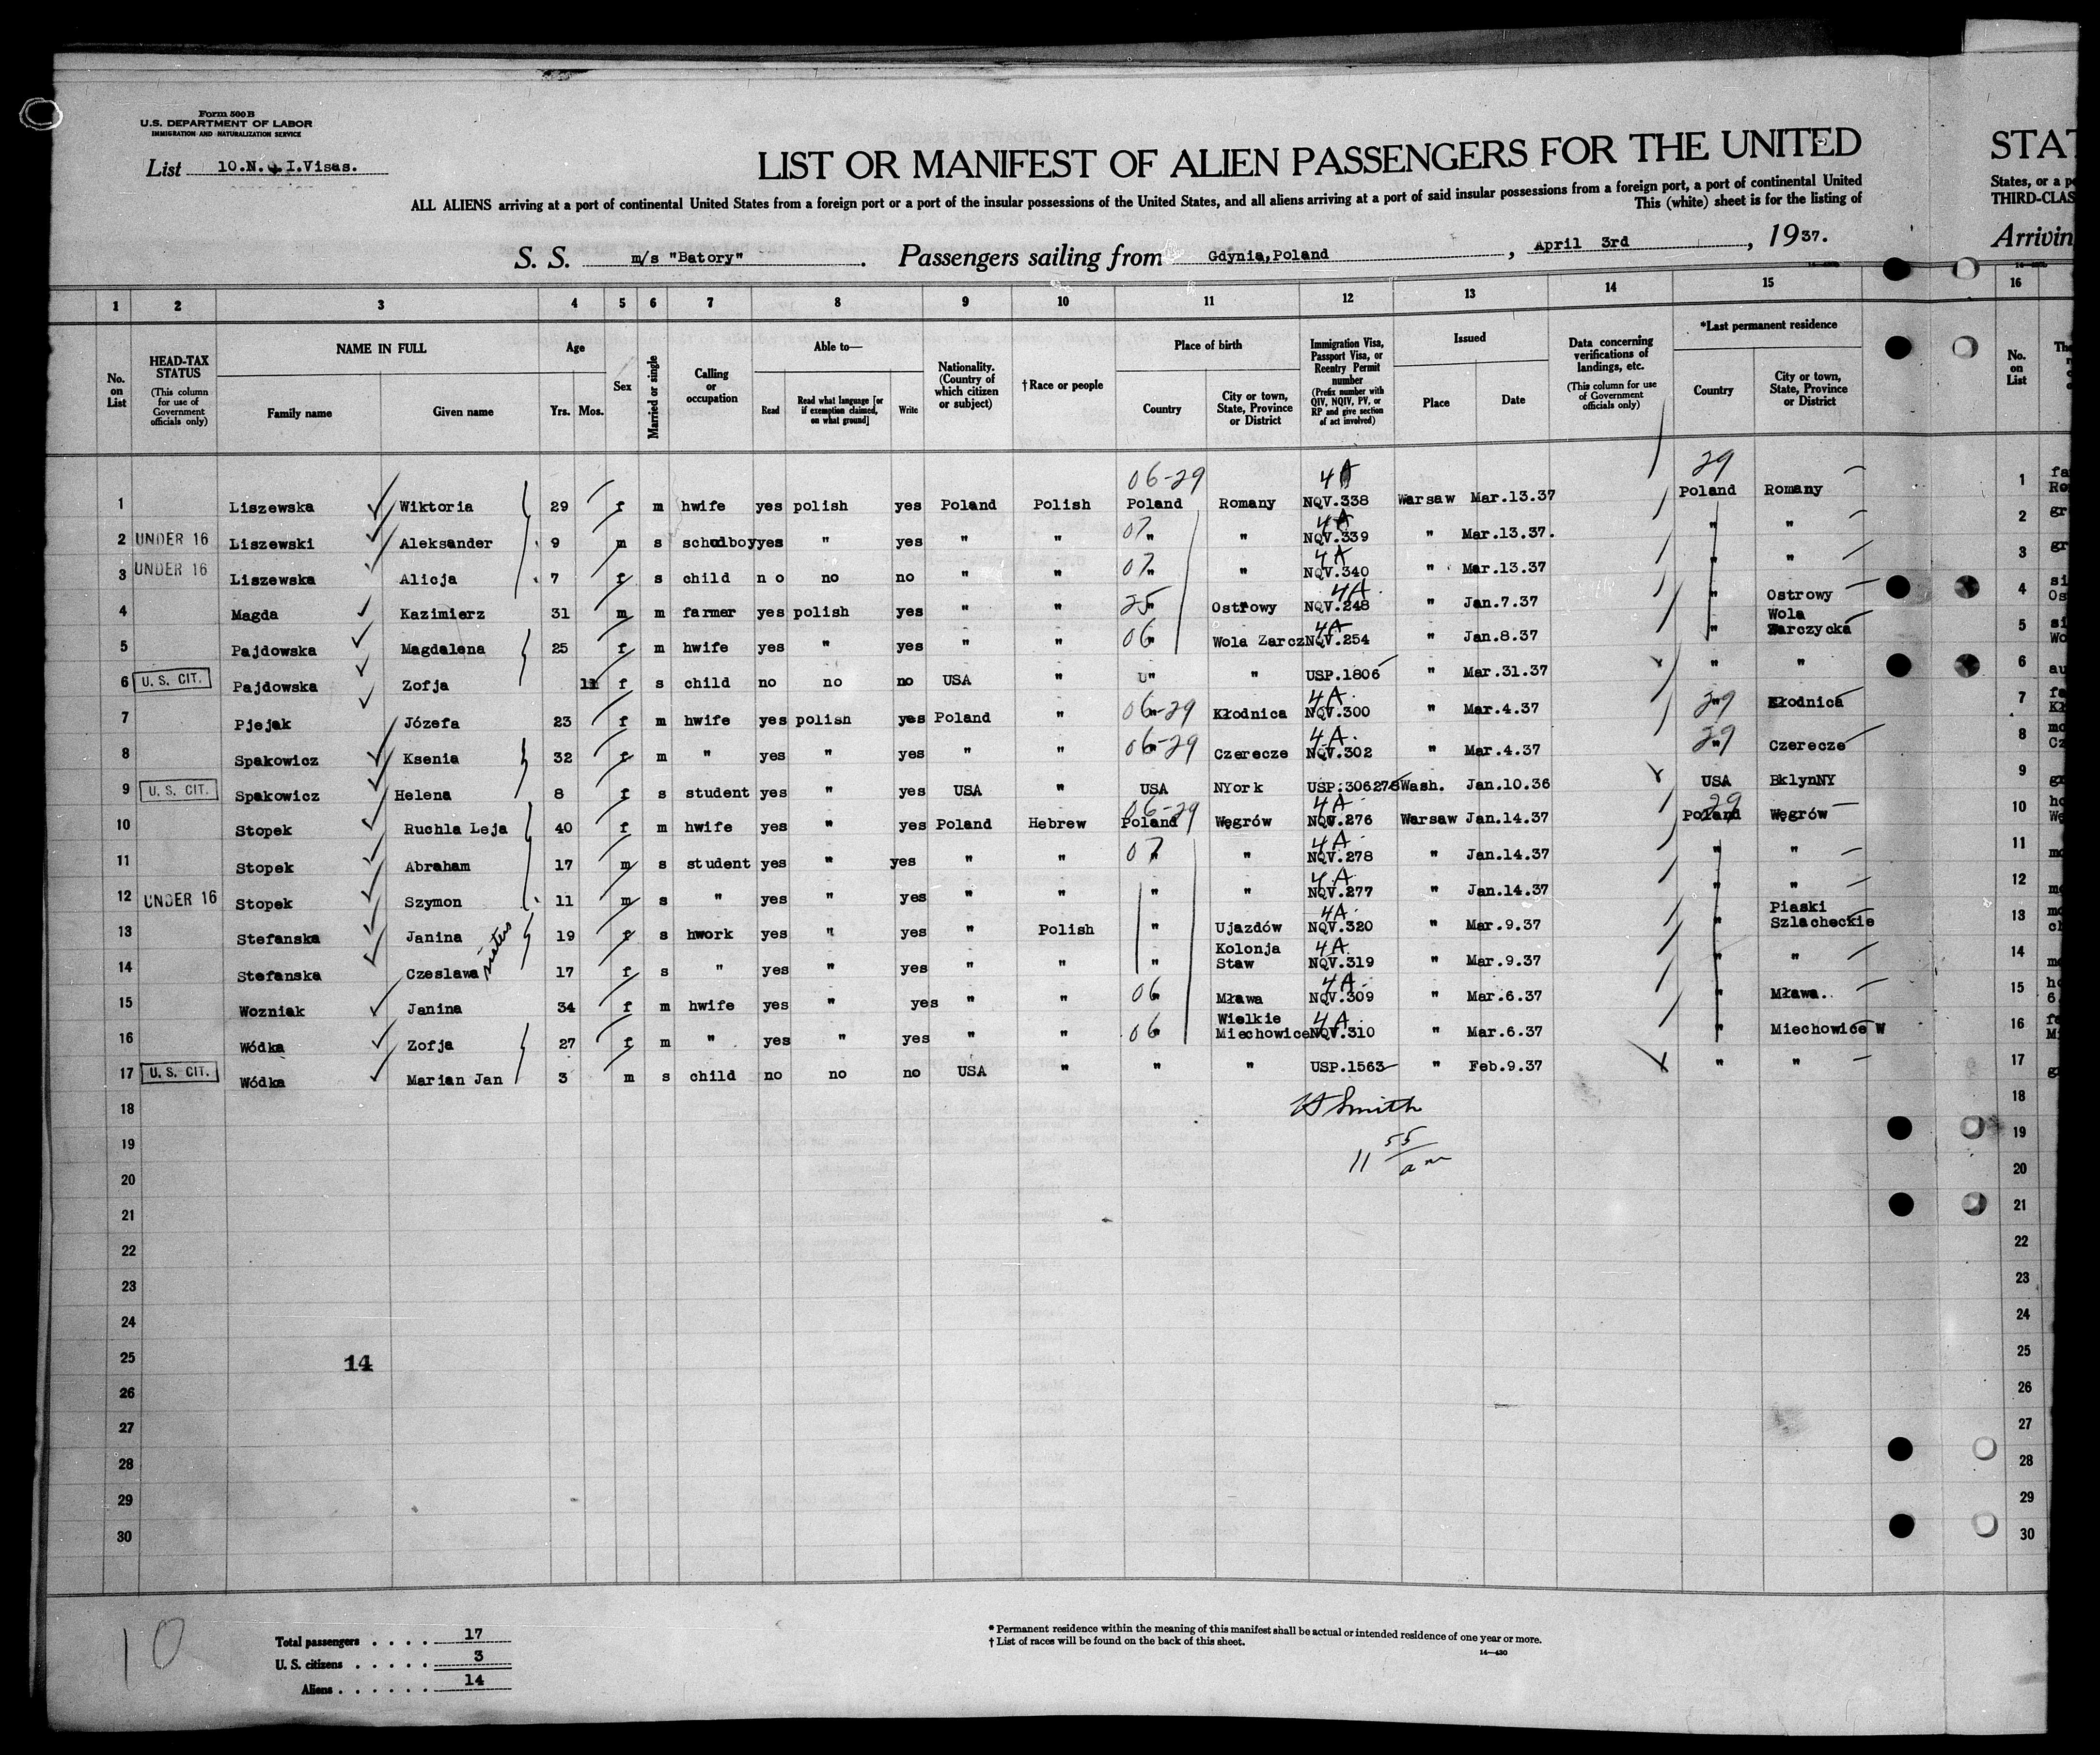 Form 500 B
U.S. DEPARTMENT OF LABOR
IMMIGRATION AND NATURALIZATION SERVICE
List 10.N.Q.I.Visas.
LIST OR MANIFEST OF ALIEN PASSENGERS FOR THE UNITED
ALL ALIENS arriving at a port of continental United States from a foreign port or a port of the insular possessions of the United States, and all aliens arriving at a port of said insular possessions from a foreign port, a port of continental United
This (white) sheet is for the listing of
S. S. m/s "Batory". Passengers sailing from Gdynia,Poland, April 3rd, 1937.
STAT
States, or a p
THIRD-CLAS
Arrivin
1 2 3 4 5 6 7 8 9 10 11 12 13 14 15 16
No. on List
HEAD-TAX STATUS (This column for use of Government officials only)
NAME IN FULL Family name Given name
Age Yrs. Mos.
Sex
Married or single
Calling or occupation
Able to— Read Read what language [or if exemption claimed, on what ground] Write
Nationality. (Country of which citizen or subject)
†Race or people
Place of birth Country City or town, State, Province or District
Immigration Visa, Passport Visa, or Reentry Permit number (Prefix number with QIV, NQIV, PV, or RP and give section of act involved)
Issued Place Date
Data concerning verifications of landings, etc. (This column for use of Government officials only)
*Last permanent residence Country City or town, State, Province or District
No. on List
06-29 4A 29
1 Liszewska Wiktoria 29 f m hwife yes polish yes Poland Polish Poland Romany NQV.338 Warsaw Mar.13.37 Poland Romany 1
07 4A
2 UNDER 16 Liszewski Aleksander 9 m s schoolboy yes " yes " " " " NQV.339 " Mar.13.37. " " 2
07 4A
3 UNDER 16 Liszewska Alicja 7 f s child no no no " " " " NQV.340 " Mar.13.37 " " 3
25 4A
4 Magda Kazimierz 31 m m farmer yes polish yes " " " Ostrowy NQV.248 " Jan.7.37 " Ostrowy 4
06 4A
5 Pajdowska Magdalena 25 f m hwife yes " yes " " " Wola Zarcz NQV.254 " Jan.8.37 " Wola Zarczycka 5
6 U. S. CIT. Pajdowska Zofja 11 f s child no no no USA " " " USP.1806 " Mar.31.37 " " 6
06-29 4A. 29
7 Pjejak Józefa 23 f m hwife yes polish yes Poland " " Kłodnica NQV.300 " Mar.4.37 " Kłodnica 7
06-29 4A. 29
8 Spakowicz Ksenia 32 f m " yes " yes " " " Czerecze NQV.302 " Mar.4.37 " Czerecze 8
9 U. S. CIT. Spakowicz Helena 8 f s student yes " yes USA " USA NYork USP.306278 Wash. Jan.10.36 USA BklynNY 9
06-29 4A 29
10 Stopek Ruchla Leja 40 f m hwife yes " yes Poland Hebrew Poland Węgrów NQV.276 Warsaw Jan.14.37 Poland Węgrów 10
07 4A
11 Stopek Abraham 17 m s student yes " yes " " " " NQV.278 " Jan.14.37 " " 11
4A
12 UNDER 16 Stopek Szymon 11 m s " yes " yes " " " " NQV.277 " Jan.14.37 " " 12
4A
13 Stefanska Janina 19 f s hwork yes " yes " Polish " Ujazdów NQV.320 " Mar.9.37 " Piaski Szlacheckie 13
sisters
4A
14 Stefanska Czeslawa 17 f s " yes " yes " " " Kolonja Staw NQV.319 " Mar.9.37 " " 14
06 4A
15 Wozniak Janina 34 f m hwife yes " yes " " " Mława NQV.309 " Mar.6.37 " Mława. 15
06 4A
16 Wódka Zofja 27 f m " yes " yes " " " Wielkie Miechowice NQV.310 " Mar.6.37 " Miechowice W 16
17 U. S. CIT. Wódka Marian Jan 3 m s child no no no USA " " " USP.1563 " Feb.9.37 " " 17
18 Smith 18
19 11 55 am 19
20 20
21 21
22 22
23 23
24 24
25 14 25
26 26
27 27
28 28
29 29
30 30
10
Total passengers . . . . 17
U. S. citizens . . . . . 3
Aliens . . . . . . 14
* Permanent residence within the meaning of this manifest shall be actual or intended residence of one year or more.
† List of races will be found on the back of this sheet.
14—430